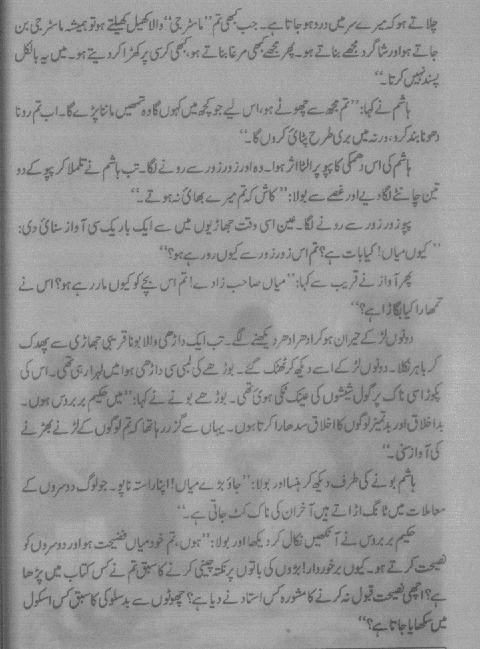 چلاتے ہو کہ میرے سر میں درد ہو جاتا ہے۔ جب کبھی تم ”ماسٹر جی“ والا کھیل کھیلتے ہو تو ہمیشہ ماسٹر جی بن
جاتے ہو اور شاگرد مجھے بناتے ہو۔ پھر مجھے کبھی مرغا بناتے ہو، کبھی کرسی پر کھڑا کر دیتے ہو۔ میں یہ بالکل
پسند نہیں کرتا۔“
ہاشم نے کہا: ”تم مجھ سے چھوٹے ہو، اس لیے جو کچھ میں کہوں گا وہ تمھیں ماننا پڑے گا۔ اب تم رونا
دھونا بند کرو، ورنہ میں بری طرح پٹائی کروں گا۔“
ہاشم کی اس دھمکی کا پپو پر الٹا اثر ہوا۔ وہ اور زور زور سے رونے لگا۔ تب ہاشم نے تلملا کر پپو کے دو
تین چانٹے لگا دیے اور غصے سے بولا: ”کاش کہ تم میرے بھائی نہ ہوتے۔“
پپو زور زور سے رونے لگا۔ عین اسی وقت جھاڑیوں میں سے ایک باریک سی آواز سنائی دی:
”کیوں میاں! کیا بات ہے؟ تم اس زور زور سے کیوں رو رہے ہو؟“
پھر آواز نے قریب سے کہا: ”میاں صاحب زادے! تم اس بچے کو کیوں مار رہے ہو؟ اس نے
تمھارا کیا بگاڑا ہے؟“
دونوں لڑکے حیران ہو کر ادھر ادھر دیکھنے لگے۔ تب ایک داڑھی والا بونا قریبی جھاڑی سے پھدک
کر باہر نکلا۔ دونوں لڑکے اسے دیکھ کر ٹھٹک گئے۔ بوڑھے کی لمبی سی داڑھی ہوا میں لہرا رہی تھی۔ اس کی
پکوڑا سی ناک پر گول شیشوں کی عینک ٹکی ہوئی تھی۔ بوڑھے بونے نے کہا: ”میں حکیم بربروس ہوں۔
بد اخلاق اور بدتمیز لوگوں کا اخلاق سدھارا کرتا ہوں۔ یہاں سے گزر رہا تھا کہ تم لوگوں کے لڑنے بھڑنے
کی آواز سنی۔“
ہاشم بونے کی طرف دیکھ کر ہنسا اور بولا: ”جاؤ بڑے میاں! اپنا راستہ ناپو۔ جو لوگ دوسروں کے
معاملات میں ٹانگ اڑاتے ہیں آخر ان کی ناک کٹ جاتی ہے۔“
حکیم بربروس نے آنکھیں نکال کر دیکھا اور بولا: ”ہوں، تم خود میاں فضیحت ہو اور دوسروں کو
نصیحت کرتے ہو۔ کیوں برخوردار! بڑوں کی باتوں پر نکتہ چینی کرنے کا سبق تم نے کس کتاب میں پڑھا
ہے؟ اچھی نصیحت قبول نہ کرنے کا مشورہ کس استاد نے دیا ہے؟ چھوٹوں سے بدسلوکی کا سبق کس اسکول
میں سکھایا جاتا ہے؟“